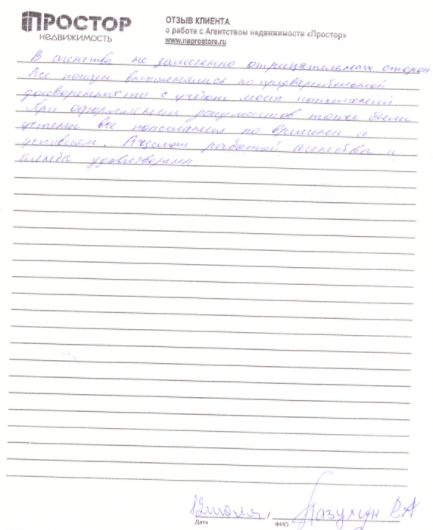 ПРОСТОР
НЕДВИЖИМОСТЬ
ОТЗЫВ КЛИЕНТА
о работе с Агентством недвижимости «Простор»
www.naprostore.ru
В агенстве не замечено отрицательных сторон
Все показы выполнялись по предварительной
договоренности с учётом моих пожеланий
При оформлении документов также были
учтены все пожелания по времени и
условиям. работой агенства и
удовлетворен
12 июля, Пазухин Р.А
Дата ФИО